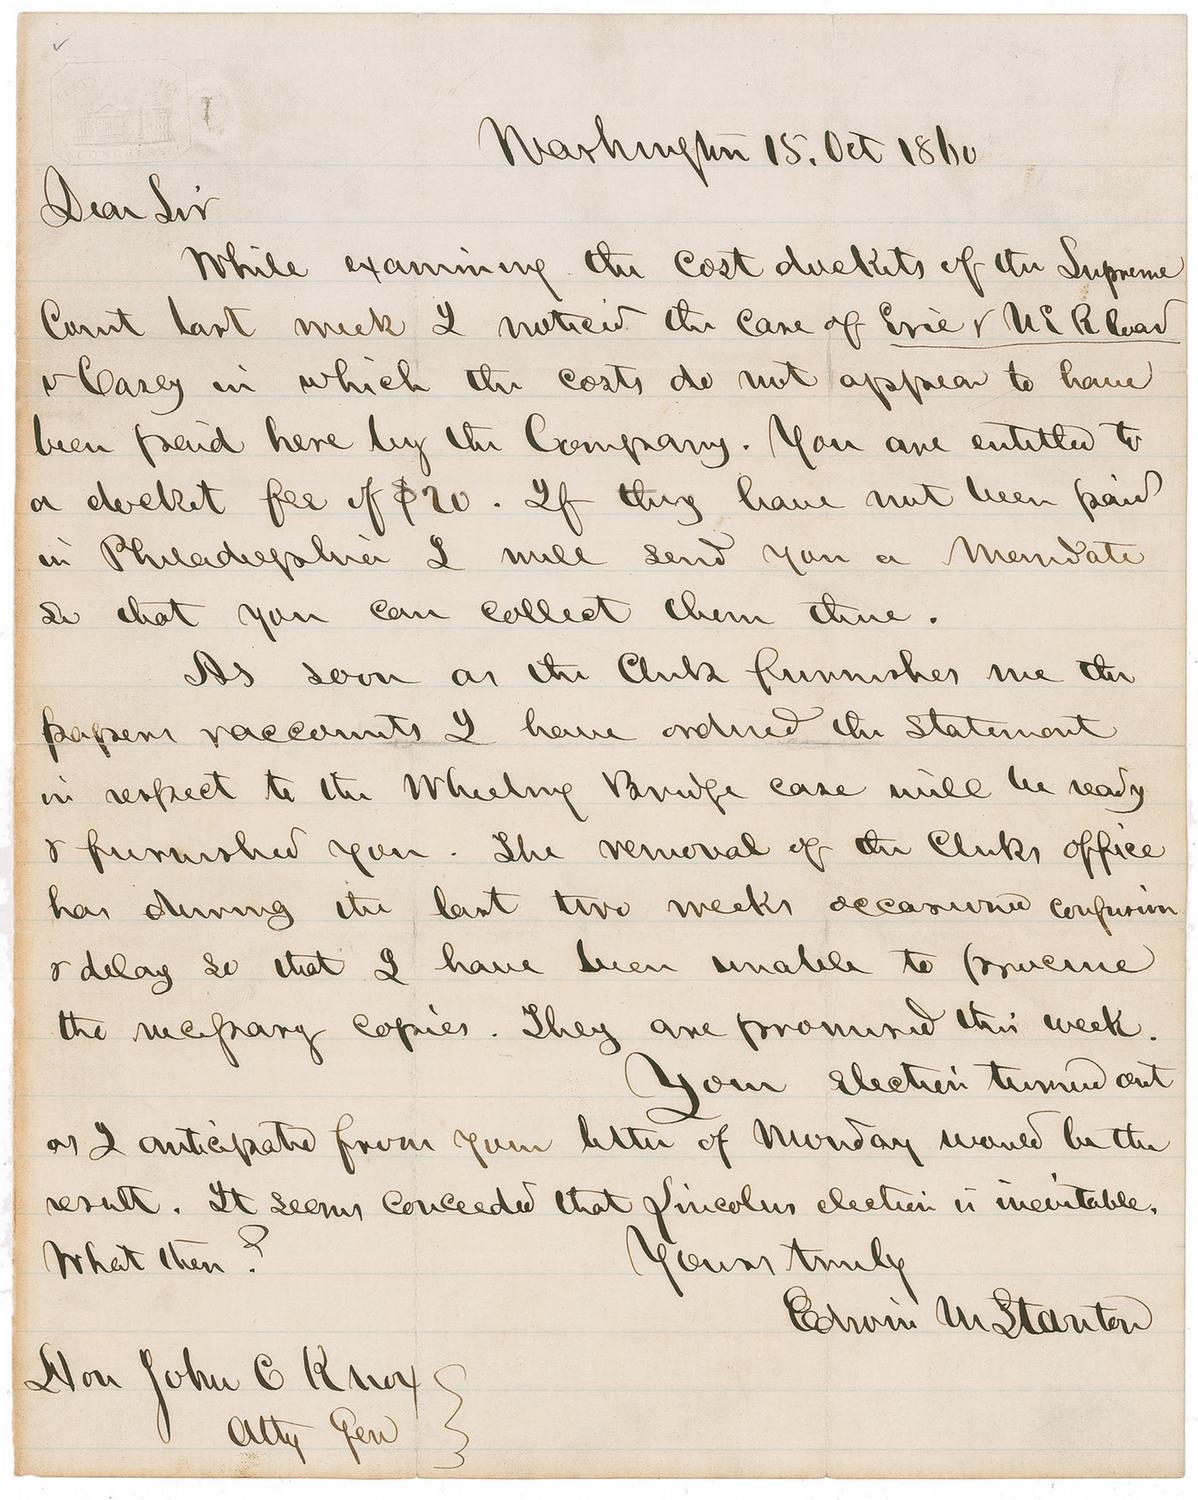 Washington 15. Oct 1860
Dear Sir
While examining the cost dockets of the Supreme
Court last week I noticed the case of Erie & NE R Road
v Casey in which the costs do not appear to have
been paid here by the Company. You are entitled to
a docket fee of $20. If they have not been paid
in Philadelphia I will send you a Mandate
so that you can collect them there.
As soon as the Clerk furnishes me the
papers & accounts I have ordered the statement
in respect to the Wheeling Bridge case will be ready
& furnished you. The removal of the Clerks office
has during the last two weeks occasioned confusion
& delay so that I have been unable to procure
the necessary copies. They are promised this week.
Your election turned out
as I anticipated from your letter of Monday would be the
result. It seems conceded that Lincolns election is inevitable.
What then?
Yours truly
Edwin M Stanton
Hon John C Knox
Atty Gen